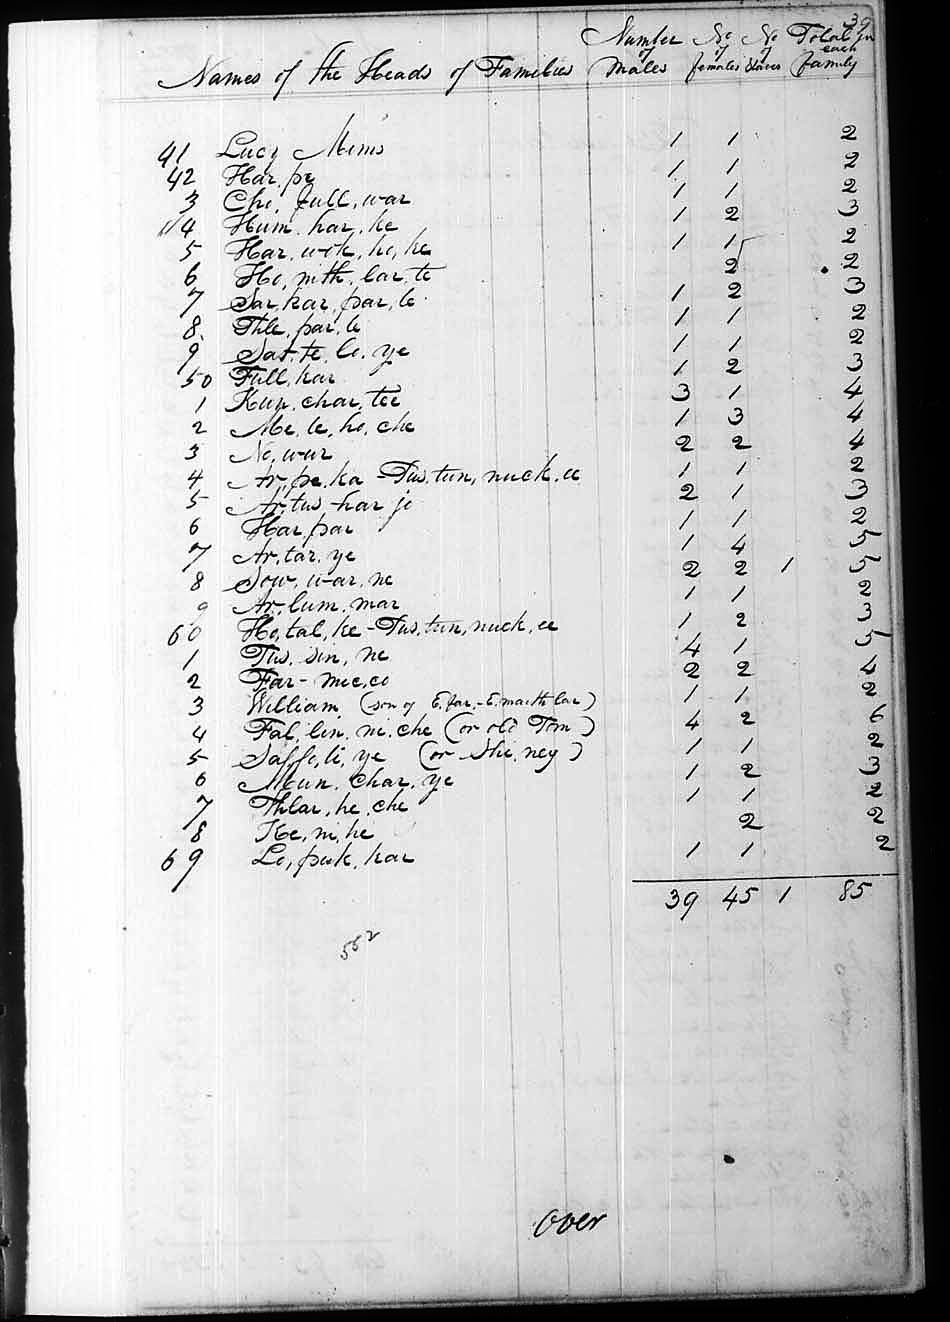 39
Number No No Total in
of of of each
Names of the Heads of Families Males females Slaves family
41 Lucy Mims 1 1 2
42 Har, pe 1 1 2
3 Cho, full, war 1 1 2
4 Hum, har, ke 1 2 3
5 Har, wok, ho, ke 1 1 2
6 Ho, nith, lar, te 2 2
7 Sar, kar, par, le 1 2 3
8 Thle, par, le 1 1 2
9 Sat, te, lo, ye 1 1 2
50 Full, kar 1 2 3
1 Kun, char, tee 3 1 4
2 Me, le, ho, che 1 3 4
3 No, wur 2 2 4
4 Ar, pe, ka - Tus, tun, nuck, ee 1 1 2
5 Ar, tus - har jo 2 1 3
6 Har, par 1 1 2
7 Ar, tar, ye 1 4 5
8 Sow, war, ne 2 2 1 5
9 Ar, lum, mar 1 1 2
60 Ho, tal, ke - Tus, tun, nuck, ee 1 2 3
1 Tus, sin, ne 4 1 5
2 Far - mic, co 2 2 4
3 William (son of E, far, - E, marth lar) 1 1 2
4 Fal, lin, ni, che (or old Tom) 4 2 6
5 Saffo, li, ye (or Shi, ney) 1 1 2
6 Mun, char, ye 1 2 3
7 Thlar, he, che 1 1 2
8 Ke, ni, he 2 2
69 Lo, puk, kar 1 1 2
39 45 1 85
562
Over